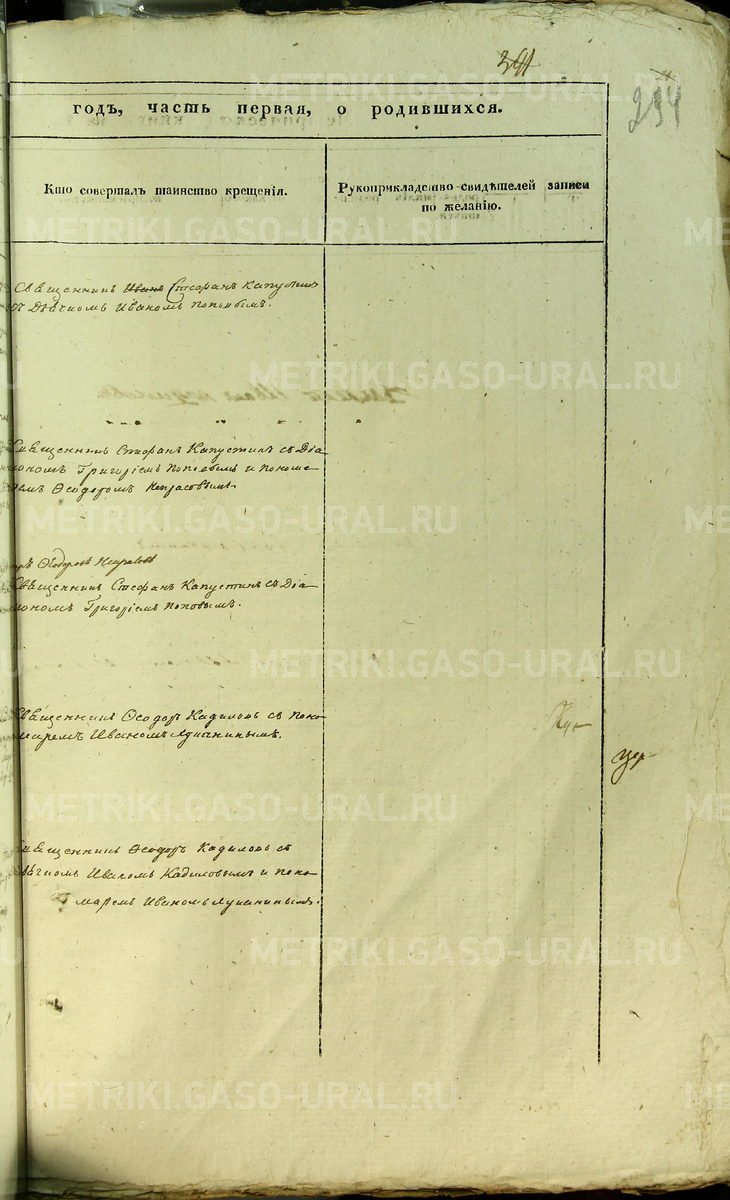 294
годъ, часть первая, о родившихся.
Кто совершалъ таинство крещенія.
Рукоприкладство свидѣтелей записи
по желанію.
Священникъ Иванъ Стефанъ Капустинъ
Дьячкомъ Иваномъ Поповымъ.
Священникъ Стефанъ Капустинъ съ Діа-
кономъ Григоріемъ Поповымъ и Понома-
ремъ Ѳеодоромъ
Священникъ Стефанъ Капустинъ съ Діа-
кономъ Григоріемъ Поповымъ.
Священникъ Ѳеодоръ Кадиловъ съ Поно-
маремъ Иваномъ Лучининымъ.
Священникъ Ѳеодоръ Кадиловъ съ
Дьячкомъ Иваномъ Кадиловымъ и Поно-
маремъ Иваномъ Лучининымъ.
METRIKI.GASO-URAL.RU